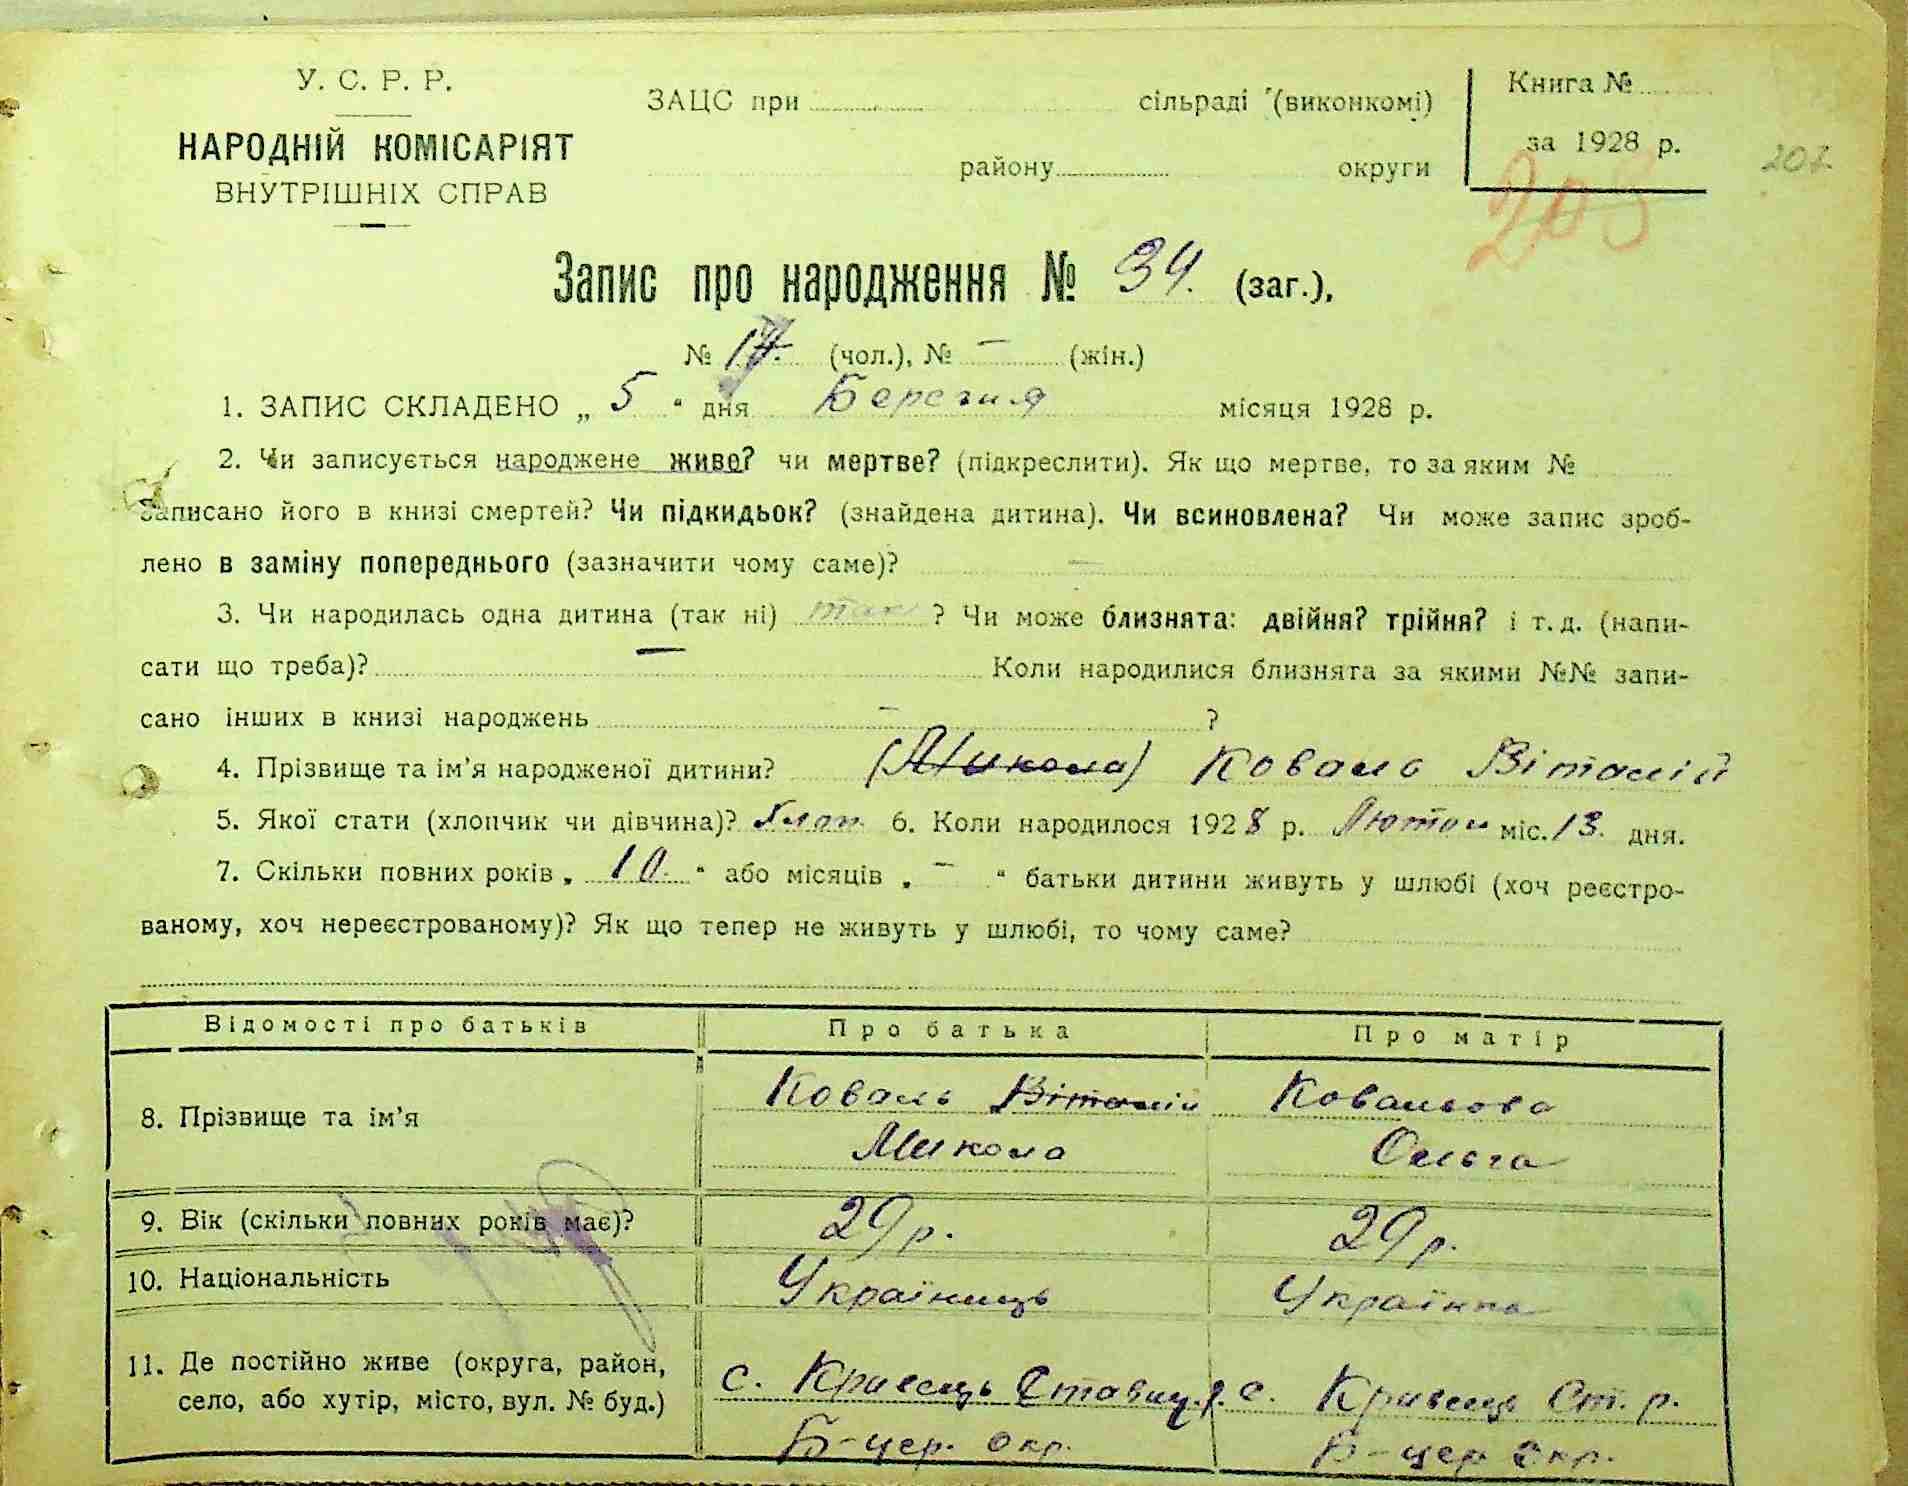 У. С. Р. Р.
НАРОДНІЙ КОМІСАРІЯТ
ВНУТРІШНІХ СПРАВ
ЗАЦС при сільраді (виконкомі)
району округи
Книга №
за 1928 р.
207
208
Запис про народження № 34. (заг.),
№ 17. (чол.), № — (жін.)
1. ЗАПИС СКЛАДЕНО „ 5 “ дня Березня місяця 1928 р.
2. Чи записується народжене живе? чи мертве? (підкреслити). Як що мертве, то за яким №
записано його в книзі смертей? Чи підкидьок? (знайдена дитина). Чи всиновлена? Чи може запис зроб-
лено в заміну попереднього (зазначити чому саме)? —
3. Чи народилась одна дитина (так ні) так ? Чи може близнята: двійня? трійня? і т. д. (напи-
сати що треба)? — Коли народилися близнята за якими №№ запи-
сано інших в книзі народжень — ?
4. Прізвище та ім'я народженої дитини? (Микола) Коваль Віталій
5. Якої стати (хлопчик чи дівчина)? хлоп. 6. Коли народилося 1928 р. Лютого міс. 13. дня.
7. Скільки повних років „ 10. “ або місяців „ — “ батьки дитини живуть у шлюбі (хоч реєстро-
ваному, хоч нереєстрованому)? Як що тепер не живуть у шлюбі, то чому саме?
Відомості про батьків Про батька Про матір
8. Прізвище та ім'я Коваль Віталій Ковальова
Микола Ольга
9. Вік (скільки повних років має)? 29 р. 29 р.
10. Національність Україниць Українка
11. Де постійно живе (округа, район, с. Кривець Ставищ. р. с. Кривець Ст. р.
село, або хутір, місто, вул. № буд.) Б-цер. окр. Б-цер окр.